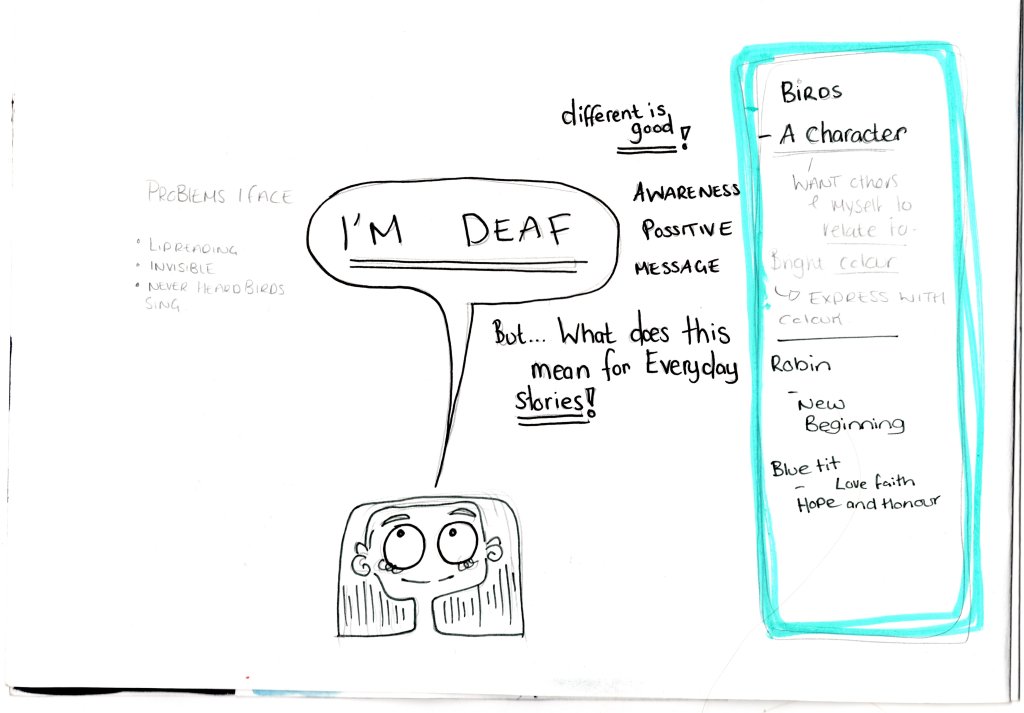 PROBLEMS I FACE
• LIPREADING
• INVISIBLE
• NEVER HEARD BIRDS
SING
I'M DEAF
different is
good!
AWARENESS
POSSITIVE
MESSAGE
But... What does this
mean for Everyday
stories!
BIRDS
- A Character
WANT others
& Myself to
relate to.
Bright colour
↳ EXPRESS WITH
colour
Robin
- New
Beginning
Blue tit
- Love faith
Hope and Honour